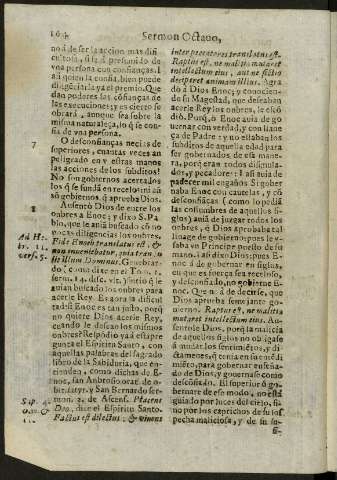 104
Sermon Octauo,
no â de ser la accion mas difi
cultosa, si se â presumido de
vna persona con confiança. I
aũ quien la confia, bien puede
diligẽciarla ya el premio. Que
dan poderes las cõfianças de
las execuciones; y es cierto se
obrarà, aunque sea sobre la
misma naturaleza, lo q̃ se con-
fia de vna persona.
7
O desconfianças necias de
superiores, quantas veces an
peligrado en vuestras manos
las acciones de los subditos!
No son gobiernos acertados
los q̃ se fundã en recelo; ni aũ
sõ gobiernos, q̃ aprueba Dios.
8
Ausentò Dios de entre los
onbres a Enoc; y dixo S. Pa-
blo, que le aniã buscado cõ no
pocas diligencias los onbres.
Ad He-
br. 11.
vers. 5.
Fide Enoch translatus est, &
non inueniebatur, quia trans-
tulit illum Dominus.
acerle Rey. Es aora la dificul
tad. Si Enoc es tan justo, porq̃
no quiere Dios acerle Rey,
cuando le desean los mismos
onbres? Respõdio ya â esta pre
gunta el Espiritu Santo, con
aquellas palabras del sagrado
libro de la Sabiduria, que en-
tienden, como dichas de E-
noc, san Ambrosio orat. de o-
bit. & san Bernardo ser-
mon. 2. de Ascens. Placens
Sap. 4.
Deo, dice el Espiritu Santo.
Factus est dilectus, & viuens
inter peccatores translatus est.
Raptus est, ne malitia mutaret
intellectum eius, aut ne fictio
deciperet animam illius. Agra
dò â Dios Enoc; y conocien-
do su Magestad, que deseaban
acerle Rey los onbres, le escõ
diò. Porq̃, ô Enoc auia de go-
uernar con verdad, y con llane
ça de Padre: y no estaban los
subditos de aquella edad para
ser gouernados de esta mane-
ra, porq̃ eran todos disimula-
dos, y pecadores: ô así auia de
padecer mil engaños. Si gober
naba Enoc con cautelas, y cõ
desconfianças (como lo pediã
las costumbres de aquellos si-
glos) auia de juzgar todos los
onbres, q̃ Dios aprobaba tal
linage de gobiernos; pues le v-
saba un Principe puesto de su
mano. I assi dice Dios; pues E-
noc à de gobernar en siglos,
en que es fuerça sea receloso,
y desconfiado, no gobierne E-
noc. Que no â de decirse, que
Dios aprueba semejante go-
bierno. Raptus est, ne malitia
mutaret intellectum eius. Au-
sentole Dios, porq̃ la malicia
de aquellos siglos no obligase
â mudar los sentimiẽtos, y di-
ctamenes, q̃ tenia en su entẽdi
miẽto, para gobernar enseña-
do de Dios, y gouernase como
desconfiado. El superior q̃ go-
bernare de ese modo, no está
guiado por luces del cielo, si-
no por los caprichos de su sos
pecha maliciosa, y de su fa-